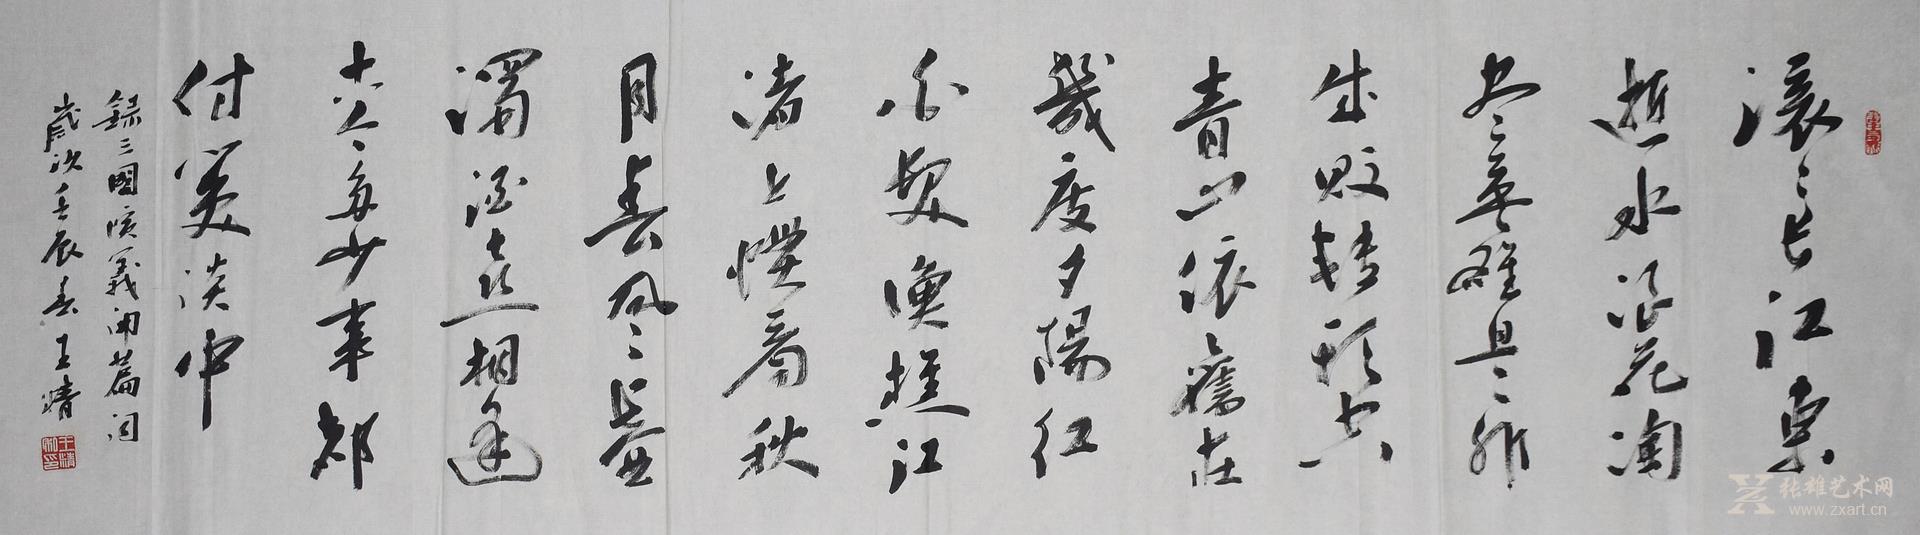 滚々长江東
逝水浪花淘
尽英雄是々非
成败转头空
青山依舊在
幾度夕陽红
白髮渔樵江
渚上惯看秋
月春风一壶
濁酒喜相逢
古今多少事都
付笑谈中
録三國演義開篇词
歲次壬辰春王清
王清私印
张雄艺术网
www.zxart.cn